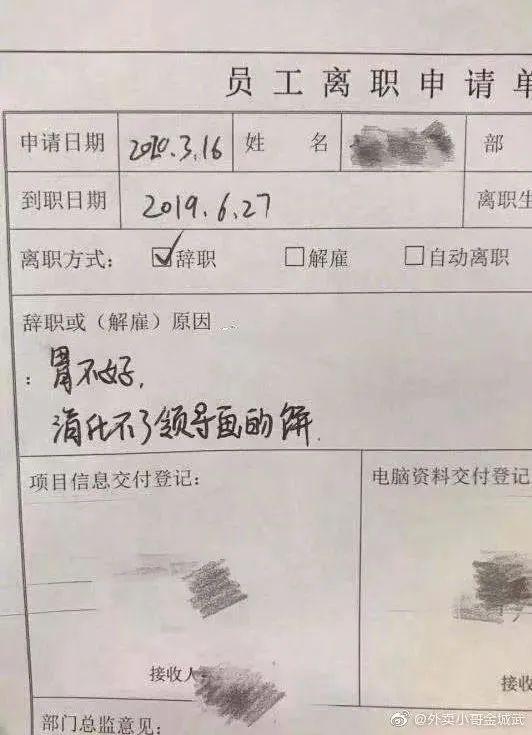 员工离职申请单
申请日期 2020.3.16 姓名 部
到职日期 2019.6.27 离职生
离职方式: ☑辞职 □解雇 □自动离职
辞职或（解雇）原因
: 胃不好,
消化不了领导画的饼.
项目信息交付登记: 电脑资料交付登记
接收人 接收
部门总监意见:
@外卖小哥金城武